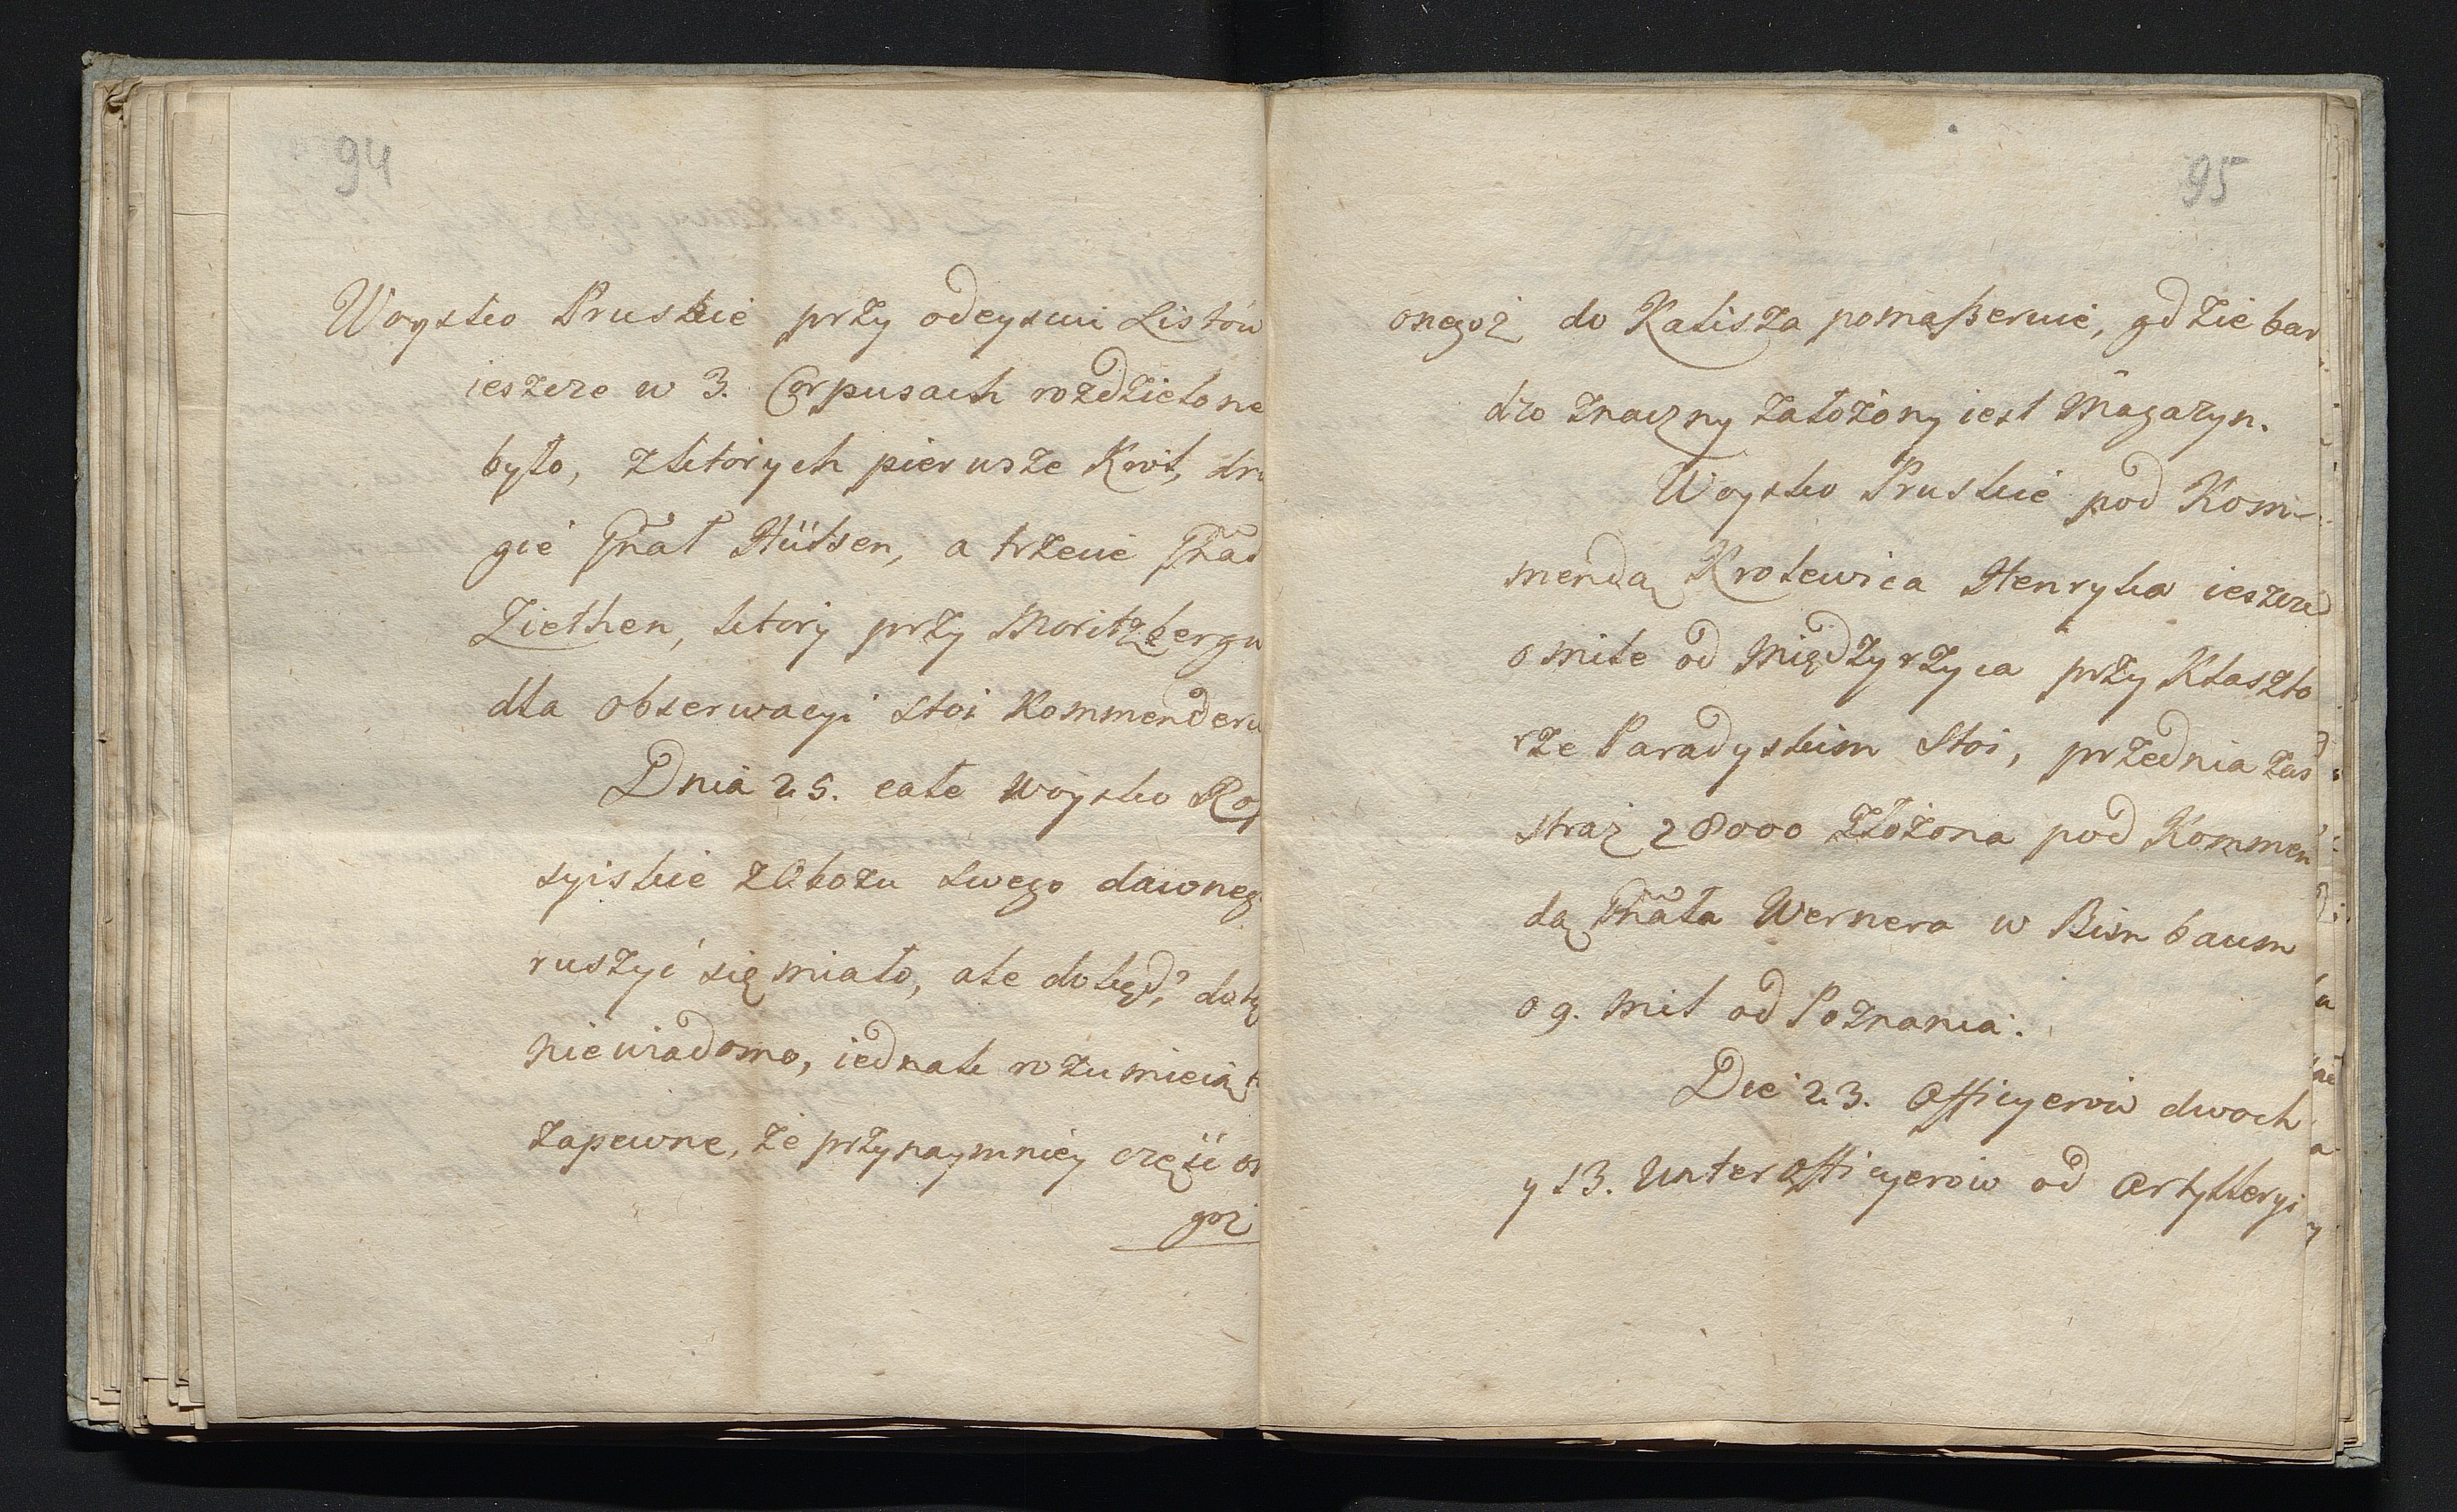 94
Woysko Pruskie przy odeysciu Listów
ieszcze w 3. Corpusach rozdzielone
było, z ktorych pierwsze Krol, dru
gie Gñał Hülsen, a trzecie Gñał
Ziethen, ktory przy Moritzbergu
dla obserwacyi stoi kommenderu
Dnia 25. całe woysko Ros
syiskie z Obozu swego dawneg
ruszyć się miało, ale dokąd? dotą
niewiadomo, iednak rozumieią
zapewne, że przynaymniey część o
goż
95
onegoż do Kalisza pomaszeruie, gdzie bar
dzo znaczny założony iest Magazyn.
Woysko Pruskie pod Kom-
mendą Krolewica Henryka ieszcze
o mile od Międzyrzyca przy Klaszto
rze Paradyskim stoi, przednia zas
straż z 8000 złożona pod Kommen
dą Gñała Wernera w Birnbaum
o 9. mil od Poznania.
Die 23. Officyerow dwoch
y 13. Unter Officyerow od Artylleryi